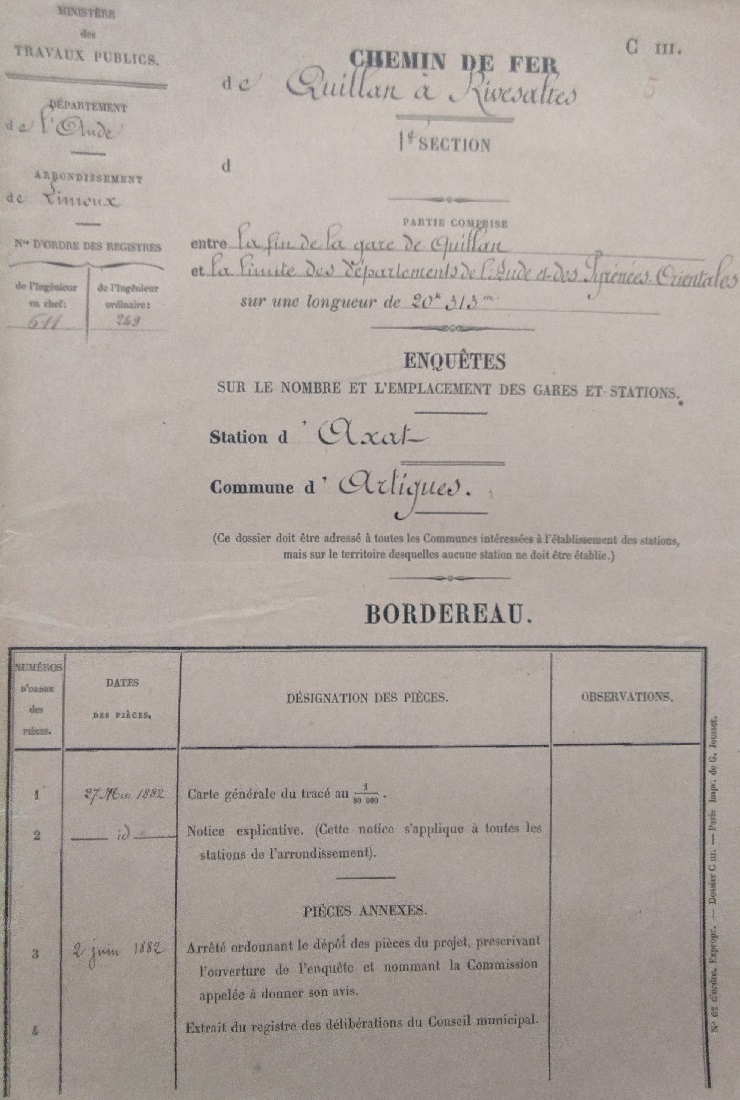 MINISTÈRE
des
TRAVAUX PUBLICS.
DÉPARTEMENT
de l'Aude
ARRONDISSEMENT
de Limoux
Nos D'ORDRE DES REGISTRES
de l'Ingénieur
en chef:
611
de l'Ingénieur
ordinaire:
249
C III.
5
CHEMIN DE FER
de Quillan à Rivesaltes
1e SECTION
d
PARTIE COMPRISE
entre la fin de la gare de Quillan
et la limite des départements de l'Aude et des Pyrénées-Orientales
sur une longueur de 20k 313m
ENQUÊTES
SUR LE NOMBRE ET L'EMPLACEMENT DES GARES ET STATIONS.
Station d'Axat
Commune d'Artigues.
(Ce dossier doit être adressé à toutes les Communes intéressées à l'établissement des stations,
mais sur le territoire desquelles aucune station ne doit être établie.)
BORDEREAU.
NUMÉROS
D'ORDRE
des
PIÈCES.
DATES
DES PIÈCES.
DÉSIGNATION DES PIÈCES.
OBSERVATIONS.
1 27 Mai 1882 Carte générale du tracé au 1/80 000.
2 — id — Notice explicative. (Cette notice s'applique à toutes les
stations de l'arrondissement).
PIÈCES ANNEXES.
3 2 juin 1882 Arrêté ordonnant le dépôt des pièces du projet, prescrivant
l'ouverture de l'enquête et nommant la Commission
appelée à donner son avis.
4 Extrait du registre des délibérations du Conseil municipal.
N° 62 d'ordre, Expropr. — Dossier C III. — Paris Impr. de G. Jousset.